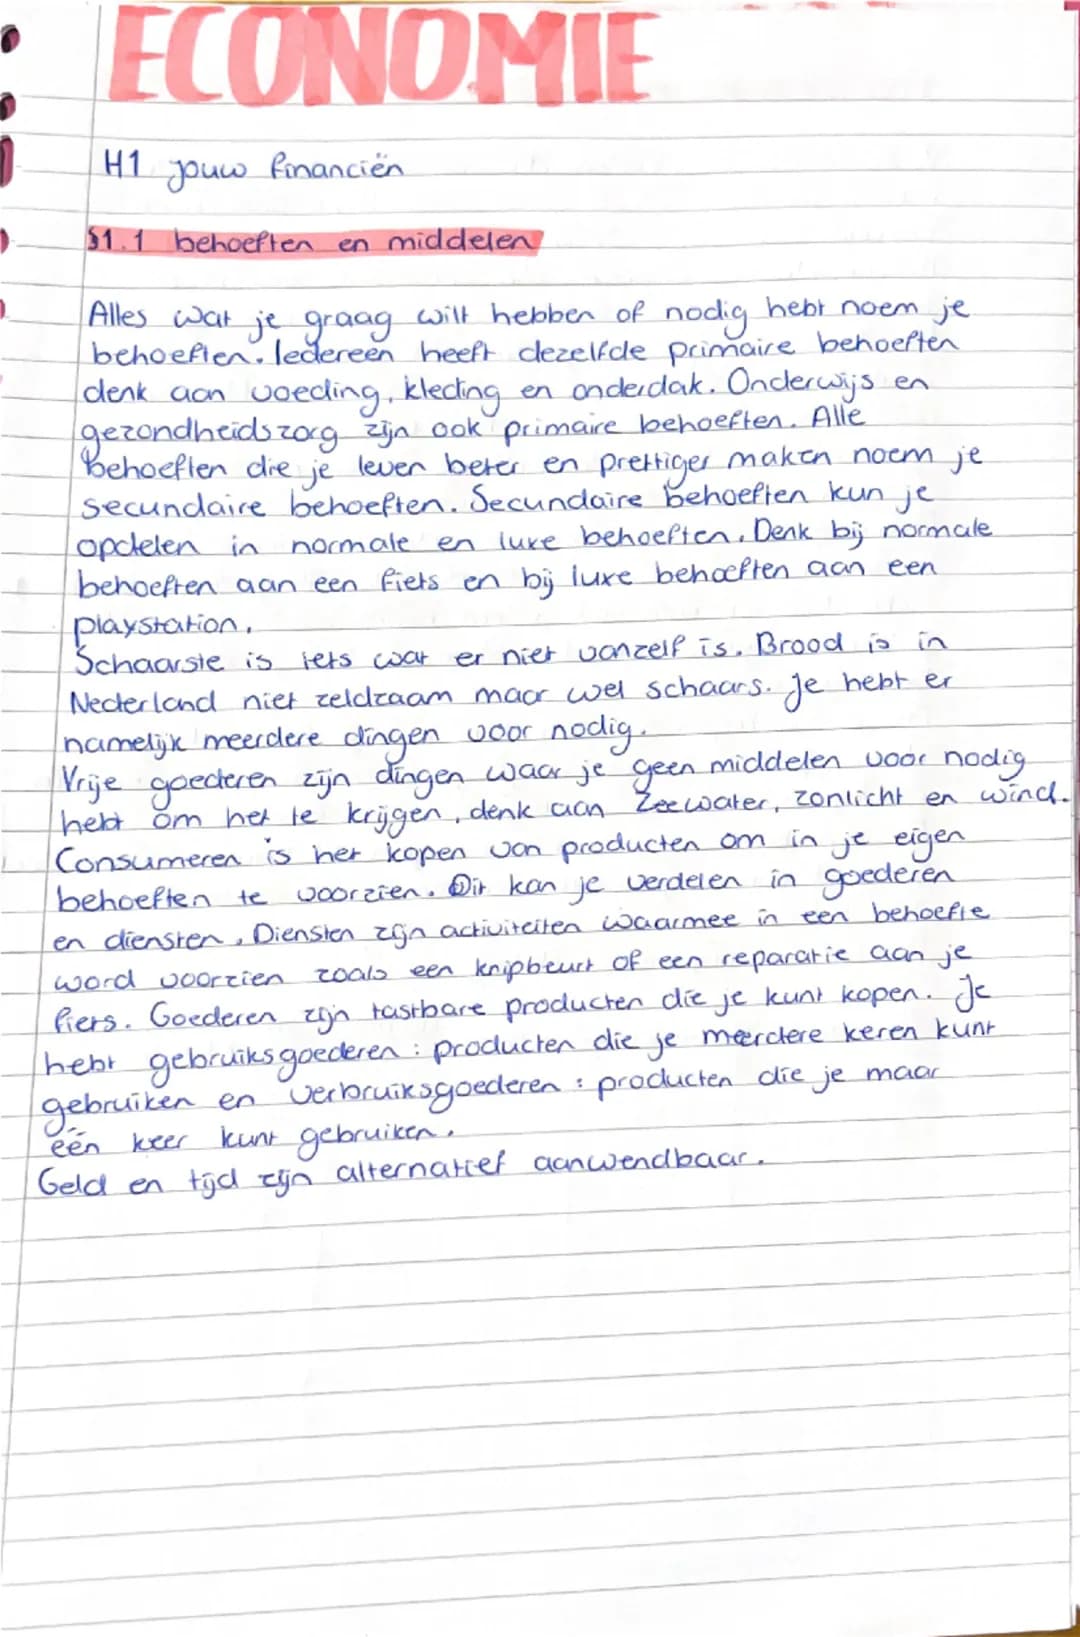 ECONOMIE
H1 jouw financiën
§1.1 behoeften en middelen
Alles wat je graag wilt hebben of nodig hebt noem je
behoeften. Iedereen heeft dezelfde primaire behoeften
denk aan voeding, kleding en onderdak. Onderwijs en
gezondheidszorg zijn ook primaire behoeften. Alle
behoeften die je leven beter en prettiger maken noem je
secundaire behoeften. Secundaire behoeften kun je
opdelen in normale en luxe behoeften. Denk bij normale
behoeften aan een fiets en bij luxe behoeften aan een
playstation.
Schaarste is iets wat er niet vanzelf is. Brood is in
Nederland niet zeldzaam maar wel schaars. Je hebt er
namelijk meerdere dingen voor nodig.
Vrije goederen zijn dingen waar je geen middelen voor nodig
hebt om het te krijgen, denk aan zeewater, zonlicht en wind.
Consumeren is het kopen van producten om in je eigen
behoeften te voorzien. Dit kan je verdelen in goederen
en diensten. Diensten zijn activiteiten waarmee in een behoefte
word voorzien zoals een knipbeurt of een reparatie aan je
fiets. Goederen zijn tastbare producten die je kunt kopen. Je
hebt gebruiksgoederen : producten die je meerdere keren kunt
gebruiken en verbruiksgoederen : producten die je maar
één keer kunt gebruiken.
Geld en tijd zijn alternatief aanwendbaar.